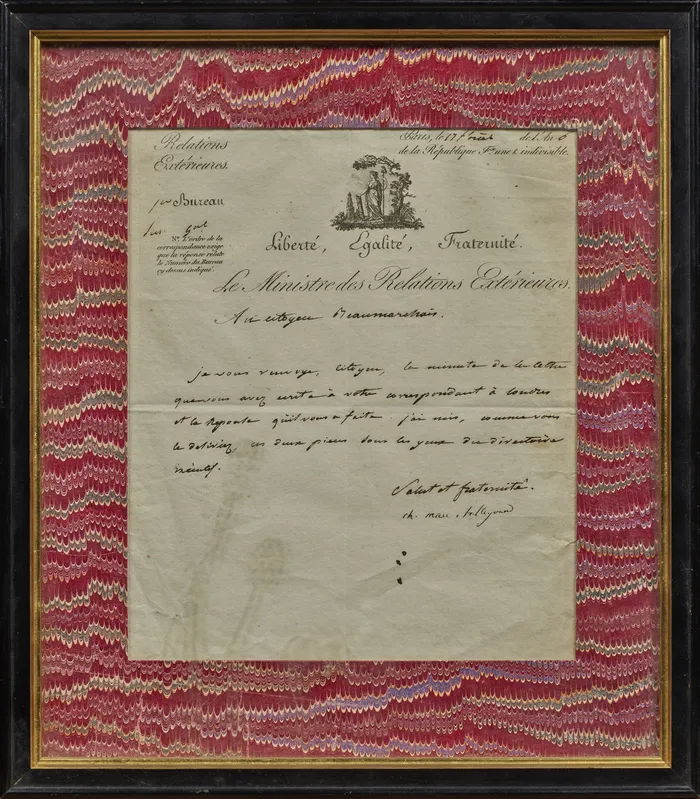 Relations
Extérieures.
Paris, le 17 de l'An 6
de la République Fse. une & indivisible.
Bureau
N.a L'ordre de la
correspondance exige
que la réponse relate
le Numéro du Bureau
cy dessus indiqué.
Liberté, Egalité, Fraternité.
Le Ministre des Relations Extérieures.
Au citoyen Beaumarchais.
je vous renvoye, citoyen, la minute de la lettre
que vous avez écrite à votre correspondant à Londres
et la Reponse qu'il vous a faite. j'ai mis, comme vous
le desiriez, ces deux pieces sous les yeux du directoire
exécutif.
Salut et fraternité.
ch. mau. talleyrand